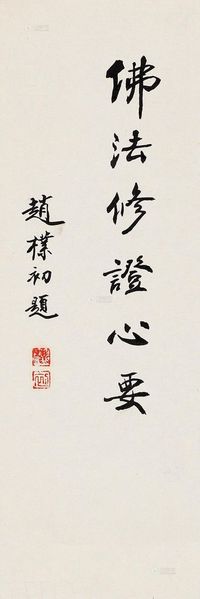 佛法修證心要
趙樸初題